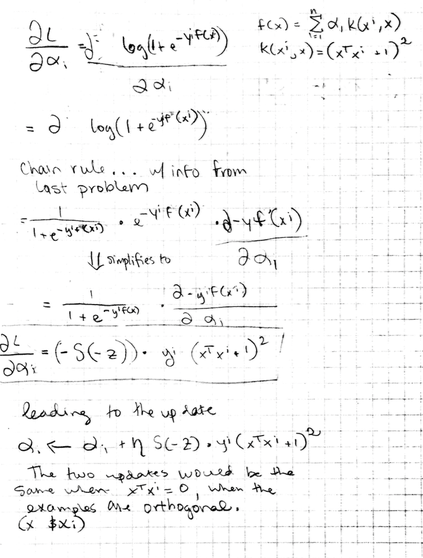 f(x) = Σⁿᵢ₌₁ αᵢ k(xⁱ, x)
k(xⁱ, x) = (xᵀxⁱ + 1)²
∂L/∂αᵢ = ∂ log(1 + e^(-yⁱf(xⁱ))) / ∂αᵢ
= ∂ log(1 + e^(-yⁱf(xⁱ)))
Chain rule... w/ info from
last problem
= 1/(1 + e^(-yⁱf(xⁱ))) · e^(-yⁱf(xⁱ)) · ∂-yf(xⁱ)/∂αᵢ
⇓ simplifies to
= 1/(1 + e^(-yⁱf(x))) · ∂-yⁱf(xⁱ)/∂αᵢ
∂L/∂αᵢ = (-S(-z)) · yⁱ (xᵀxⁱ + 1)²
leading to the update
αᵢ ← αᵢ + η S(-z) · yⁱ (xᵀxⁱ + 1)²
The two updates would be the
same when xᵀxⁱ = 0, when the
examples are orthogonal.
(x $ xi)